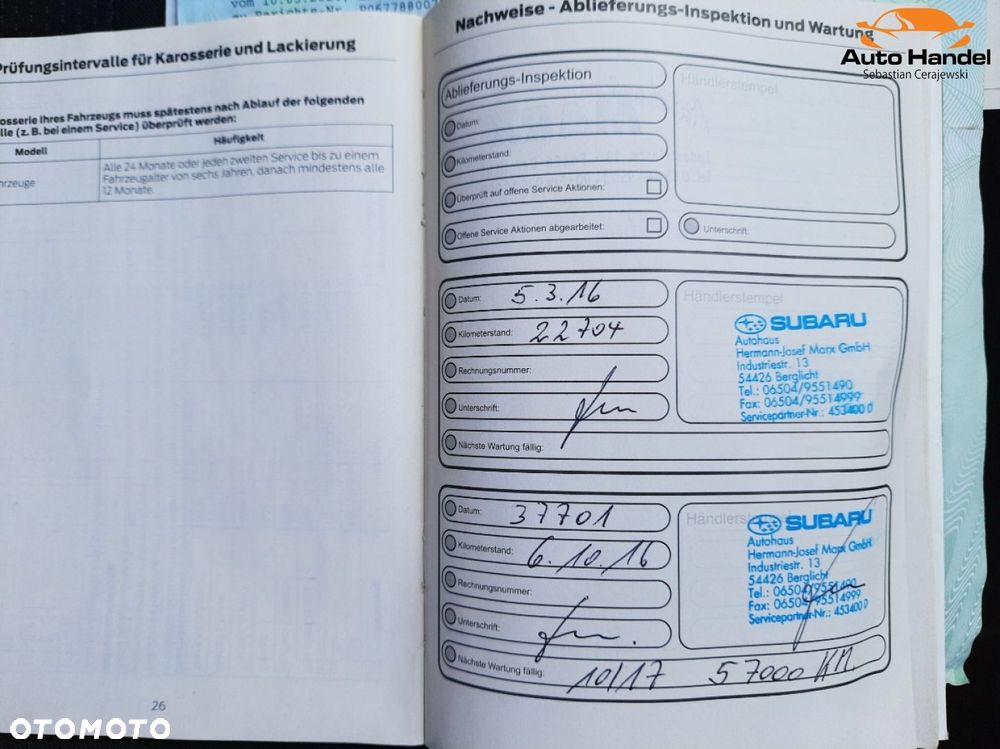 vom 10.
zu Berichts-Nr. P0677880
Prüfungsintervalle für Karosserie und Lackierung
osserie Ihres Fahrzeugs muss spätestens nach Ablauf der folgenden
lle (z. B. bei einem Service) überprüft werden:
Modell
Häufigkeit
hrzeuge
Alle 24 Monate oder jeden zweiten Service bis zu einem
Fahrzeugalter von sechs Jahren, danach mindestens alle
12 Monate.
26
OTOMOTO
Nachweise - Ablieferungs-Inspektion und Wartung
Auto Handel
Sebastian Cerajewski
Ablieferungs-Inspektion
Händlerstempel
Datum:
Kilometerstand:
Überprüft auf offene Service Aktionen:
Offene Service Aktionen abgearbeitet:
Unterschrift:
Datum: 5.3.16
Kilometerstand: 22704
Rechnungsnummer:
Unterschrift:
Nächste Wartung fällig:
Händlerstempel
SUBARU
Autohaus
Hermann-Josef Marx GmbH
Industriestr. 13
54426 Berglicht
Tel.: 06504/9551490
Fax: 06504/95514999
Servicepartner-Nr.: 453400 D
Datum: 37701
Kilometerstand: 6.10.16
Rechnungsnummer:
Unterschrift:
Nächste Wartung fällig: 10/17 57000 KM
Händlerstempel
SUBARU
Autohaus
Hermann-Josef Marx GmbH
Industriestr. 13
54426 Berglicht
Tel.: 06504/9551490
Fax: 06504/95514999
Servicepartner-Nr.: 453400 D